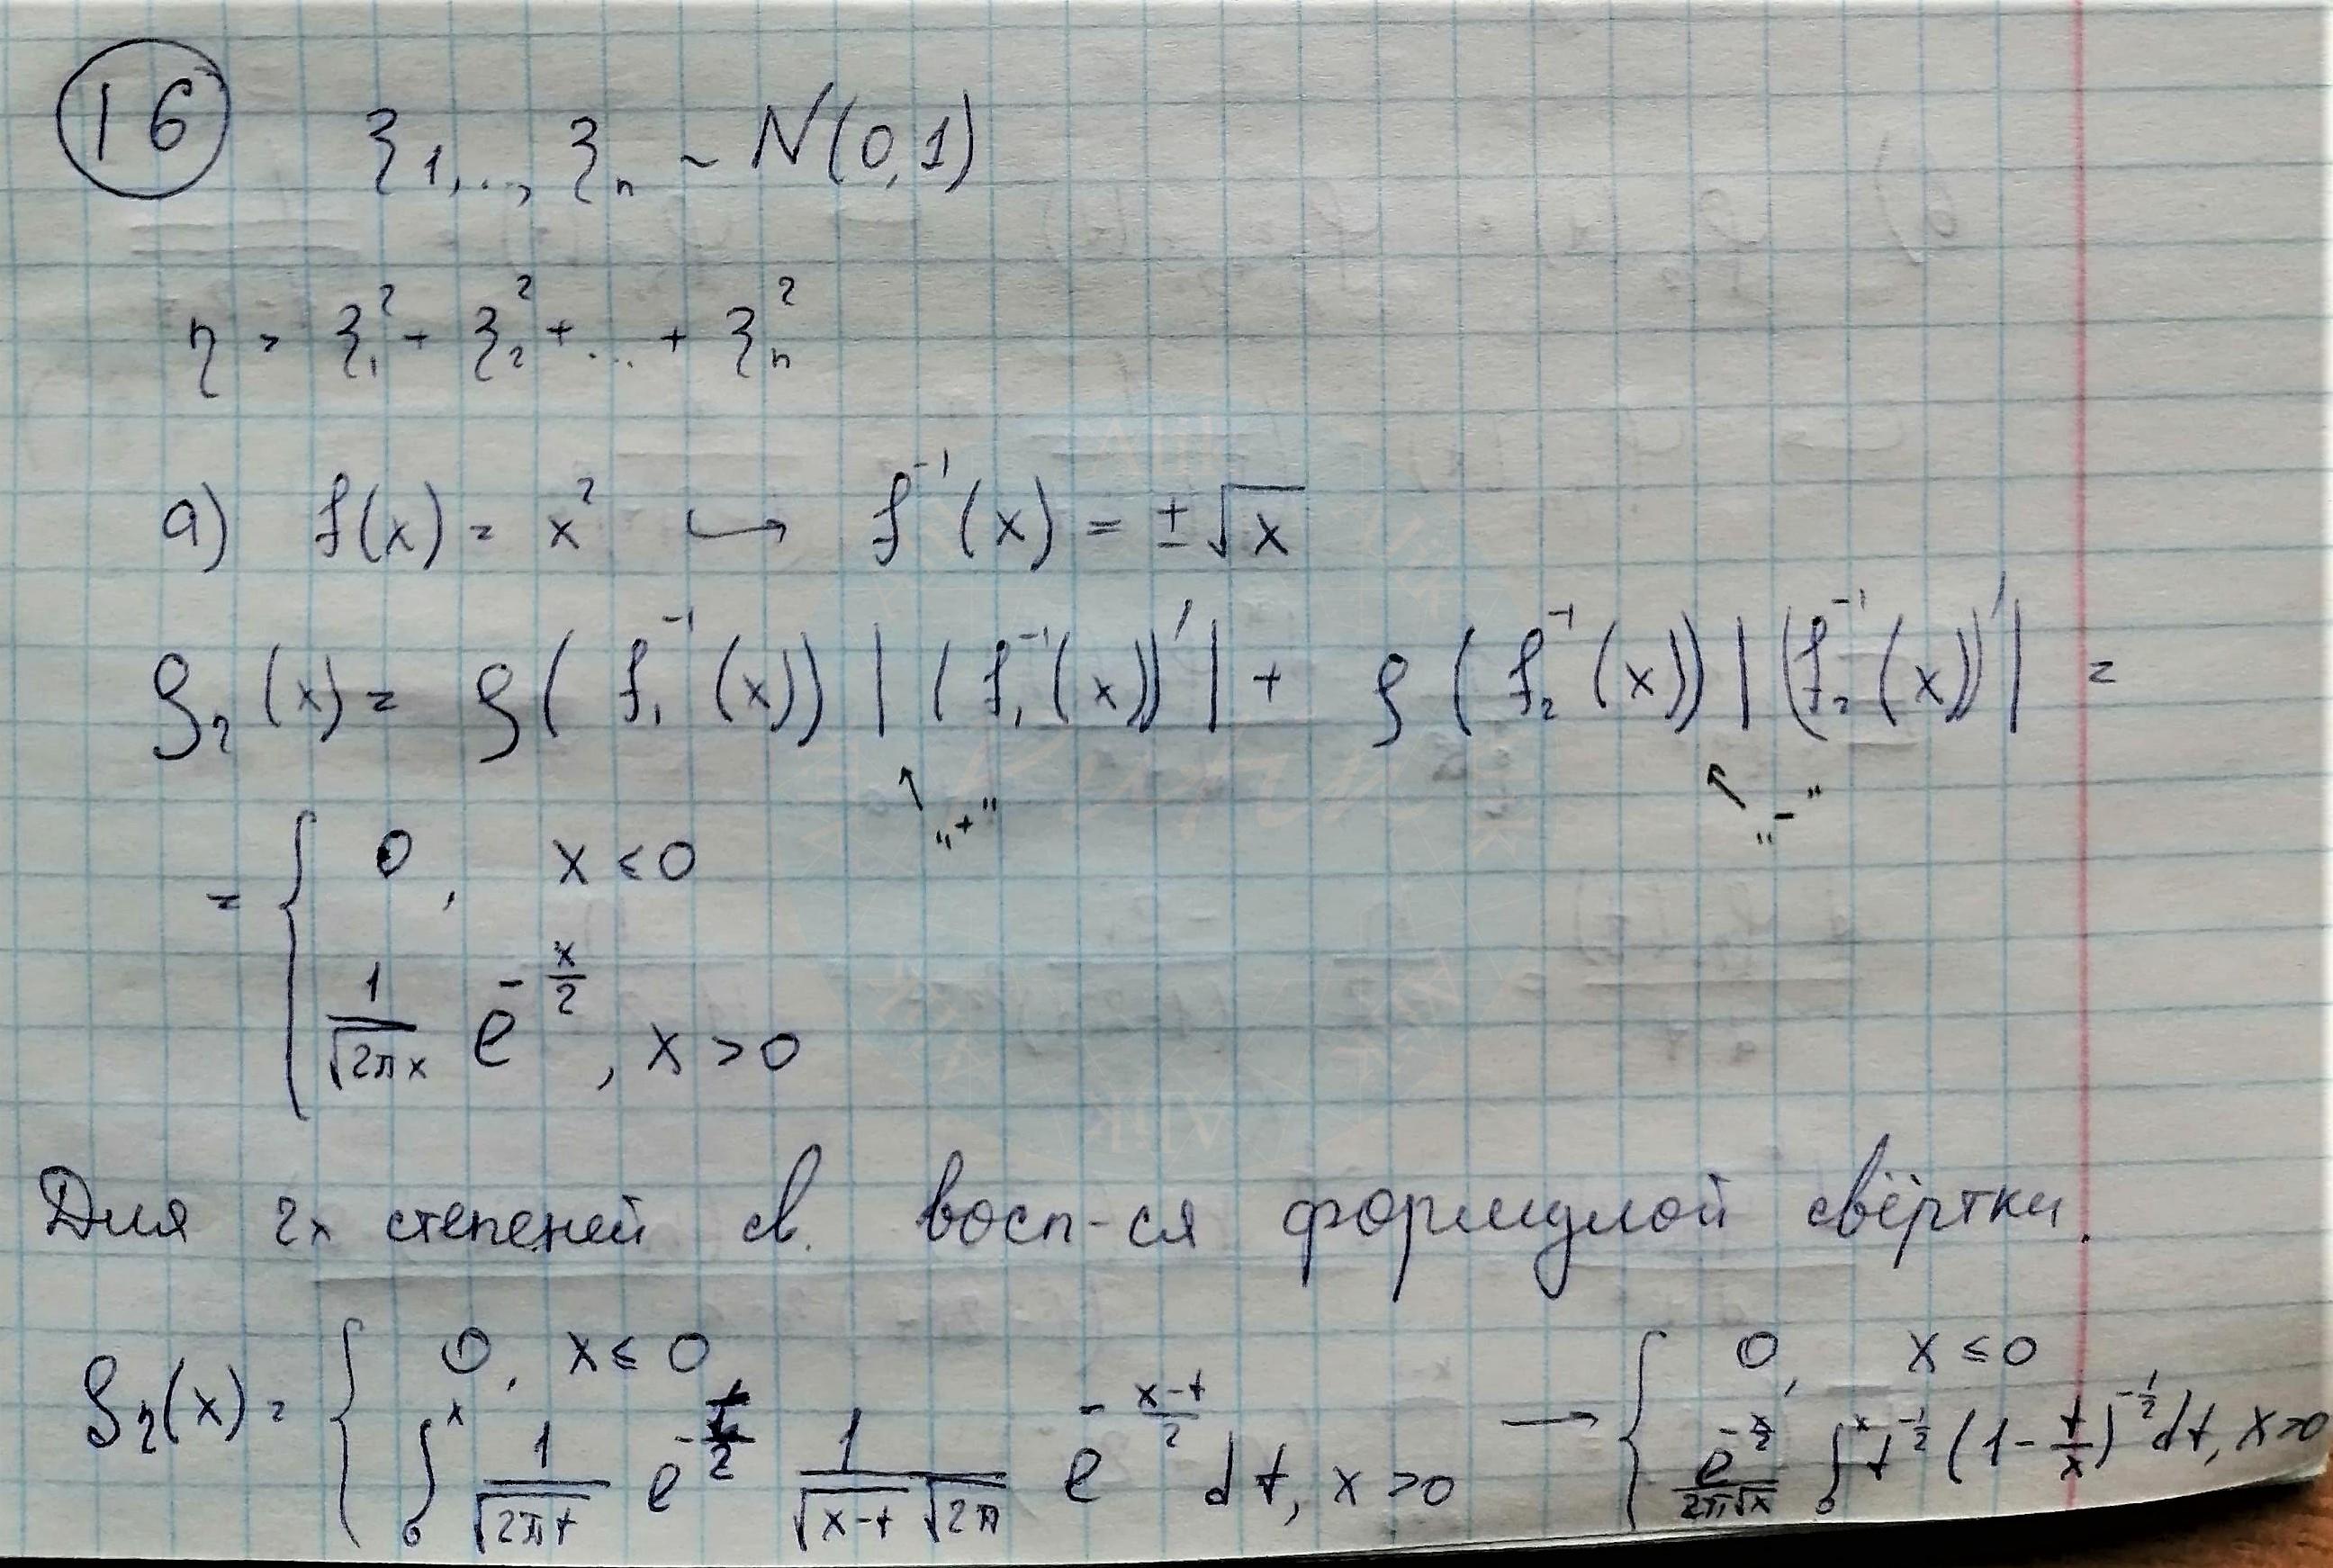 16 ξ₁,.., ξₙ ~ N(0,1)
η = ξ₁² + ξ₂² + ... + ξₙ²
а) f(x) = x² ↪ f⁻¹(x) = ±√x
ρ_η(x) = ρ(f₁⁻¹(x)) |(f₁⁻¹(x))'| + ρ(f₂⁻¹(x)) |(f₂⁻¹(x))'| =
„+“ „-“
= { 0, x ≤ 0
1/√(2πx) e^(-x/2), x > 0
Для 2х степеней св. восп-ся формулой свёртки.
ρ_η(x) = { 0, x ≤ 0 → { 0, x ≤ 0
∫₀ˣ 1/√(2πt) e^(-t/2) 1/(√(x-t) √(2π)) e^(-(x-t)/2) dt, x > 0 e^(-x/2)/(2π√x) ∫₀ˣ t^(-1/2) (1 - t/x)^(-1/2) dt, x > 0